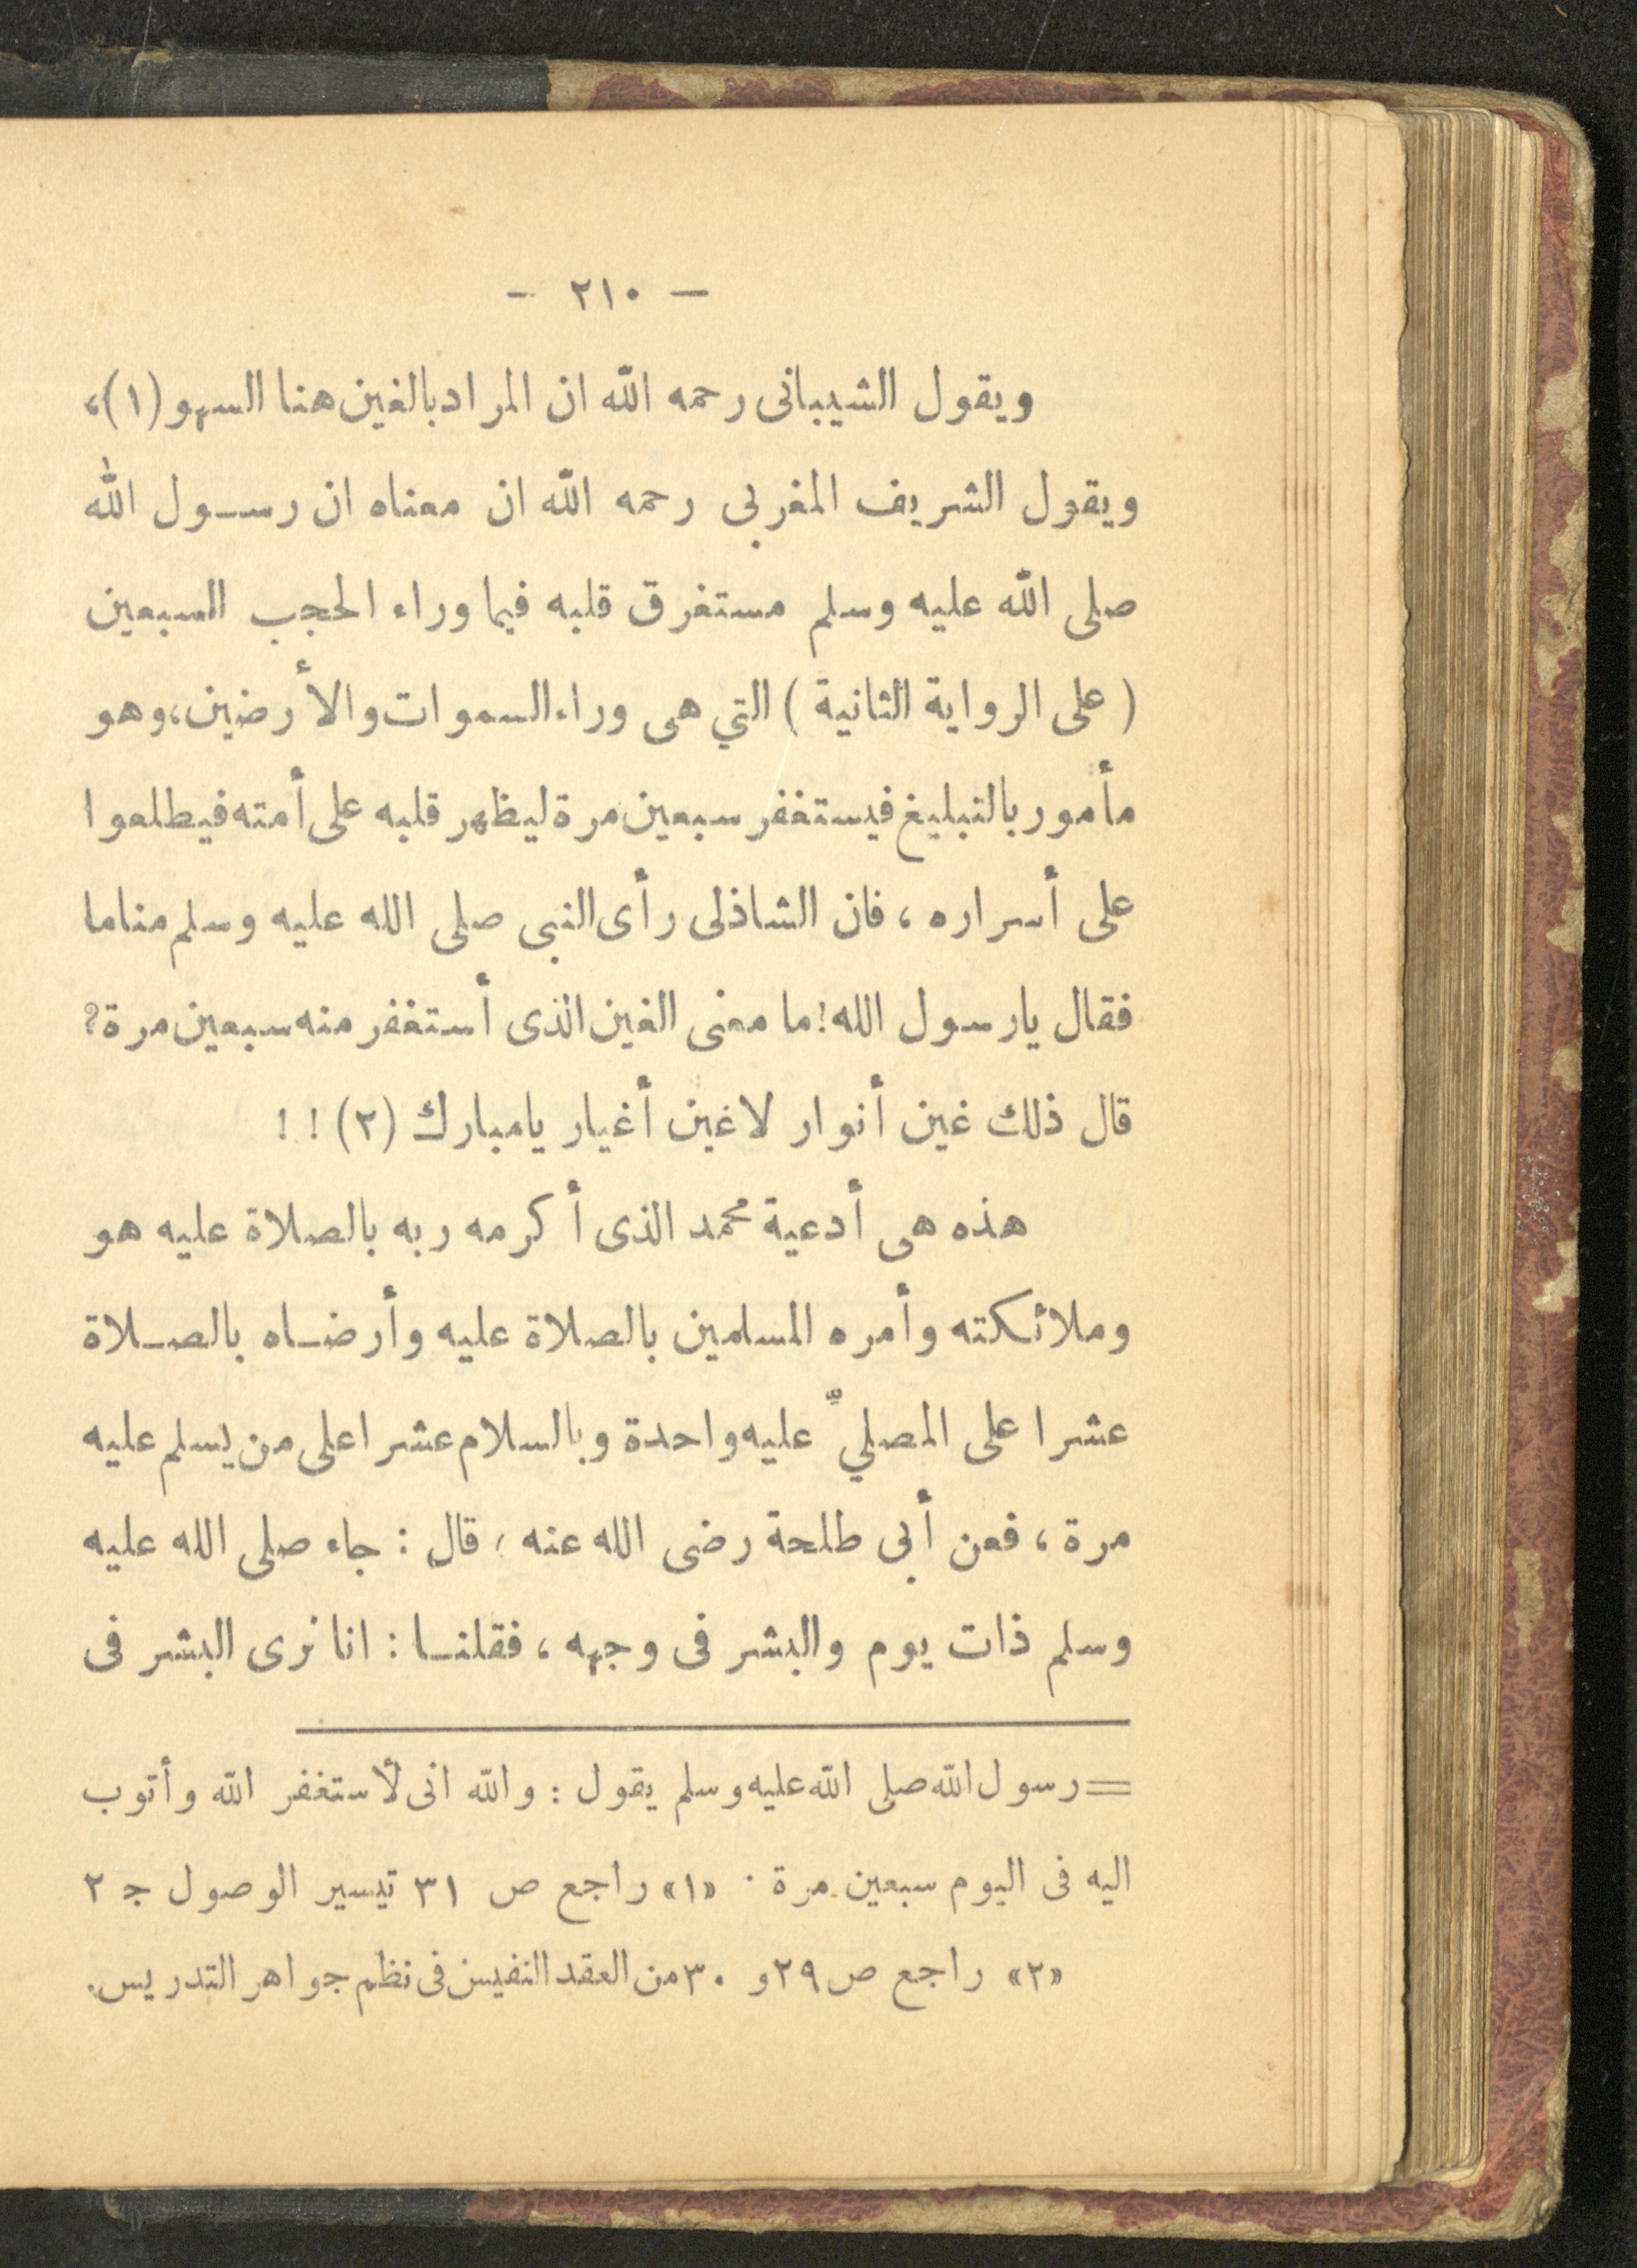 — ٢١٠ —
ويقول الشيبانى رحمه الله ان المراد بالغين هنا السهو (١)،
ويقول الشريف المغربى رحمه الله ان معناه ان رسول الله
صلى الله عليه وسلم مستغرق قلبه فيما وراء الحجب السبعين
( على الرواية الثانية ) التي هى وراء السموات والأرضين، وهو
مأمور بالتبليغ فيستغفر سبعين مرة ليظهر قلبه على أمته فيطلعوا
على أسراره ، فان الشاذلى رأى النبى صلى الله عليه وسلم مناما
فقال يارسول الله! ما معنى الغين الذى أستغفر منه سبعين مرة؟
قال ذلك غين أنوار لاغين أغيار يامبارك (٢) ! !
هذه هى أدعية محمد الذى أكرمه ربه بالصلاة عليه هو
وملائكته وأمره المسلمين بالصلاة عليه وأرضاه بالصلاة
عشرا على المصليِّ عليه واحدة وبالسلام عشرا على من يسلم عليه
مرة ، فعن أبى طلحة رضى الله عنه ، قال : جاء صلى الله عليه
وسلم ذات يوم والبشر فى وجهه ، فقلنا : انا نرى البشر فى
= رسول الله صلى الله عليه وسلم يقول : والله انى لأستغفر الله وأتوب
اليه فى اليوم سبعين مرة . «١» راجع ص ٣١ تيسير الوصول ج ٢
«٢» راجع ص ٢٩ و ٣٠ من العقد النفيس فى نظم جواهر التدريس.